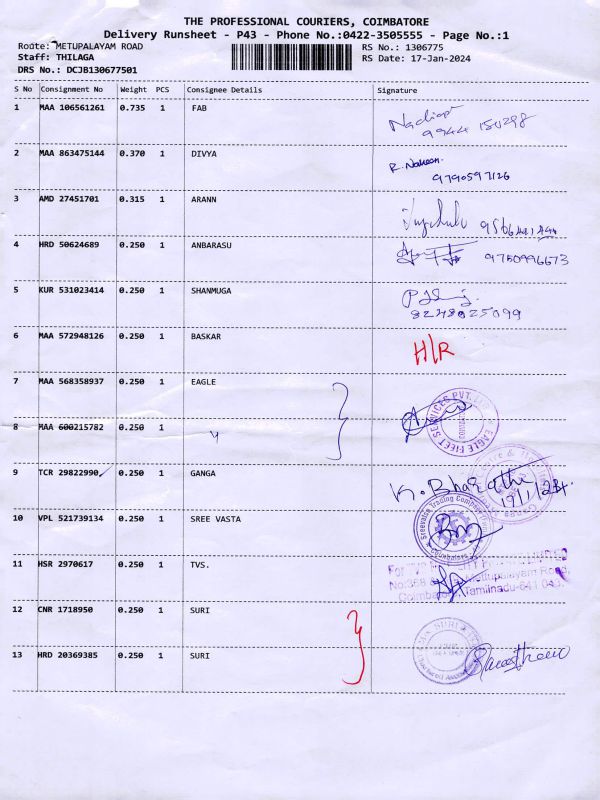 THE PROFESSIONAL COURIERS, COIMBATORE
Delivery Runsheet - P43 - Phone No.:0422-3505555 - Page No.:1
Route: METUPALAYAM ROAD
RS No.: 1306775
Staff: THILAGA
RS Date: 17-Jan-2024
DRS No.: DCJB130677501
S No Consignment No Weight PCS Consignee Details Signature
1 MAA 106561261 0.735 1 FAB
9944 150298
2 MAA 863475144 0.370 1 DIVYA
R. Nakeen.
9790597126
3 AMD 27451701 0.315 1 ARANN
4 HRD 50624689 0.250 1 ANBARASU
9750996673
5 KUR 531023414 0.250 1 SHANMUGA
8248025099
6 MAA 572948126 0.250 1 BASKAR
H/R
7 MAA 568358937 0.250 1 EAGLE
EAGLE FLEET SERVICES PVT.
8 MAA 600215782 0.250 1
9 TCR 29822990 0.250 1 GANGA
K. Bharathi
17/1/24.
10 VPL 521739134 0.250 1 SREE VASTA
Sreevatsa Trading Company
Coimbatore
11 HSR 2970617 0.250 1 TVS.
For TVS
No:358 Mettupalayam Road,
Coimbatore, Tamilnadu-641 043.
12 CNR 1718950 0.250 1 SURI
SURI
13 HRD 20369385 0.250 1 SURI